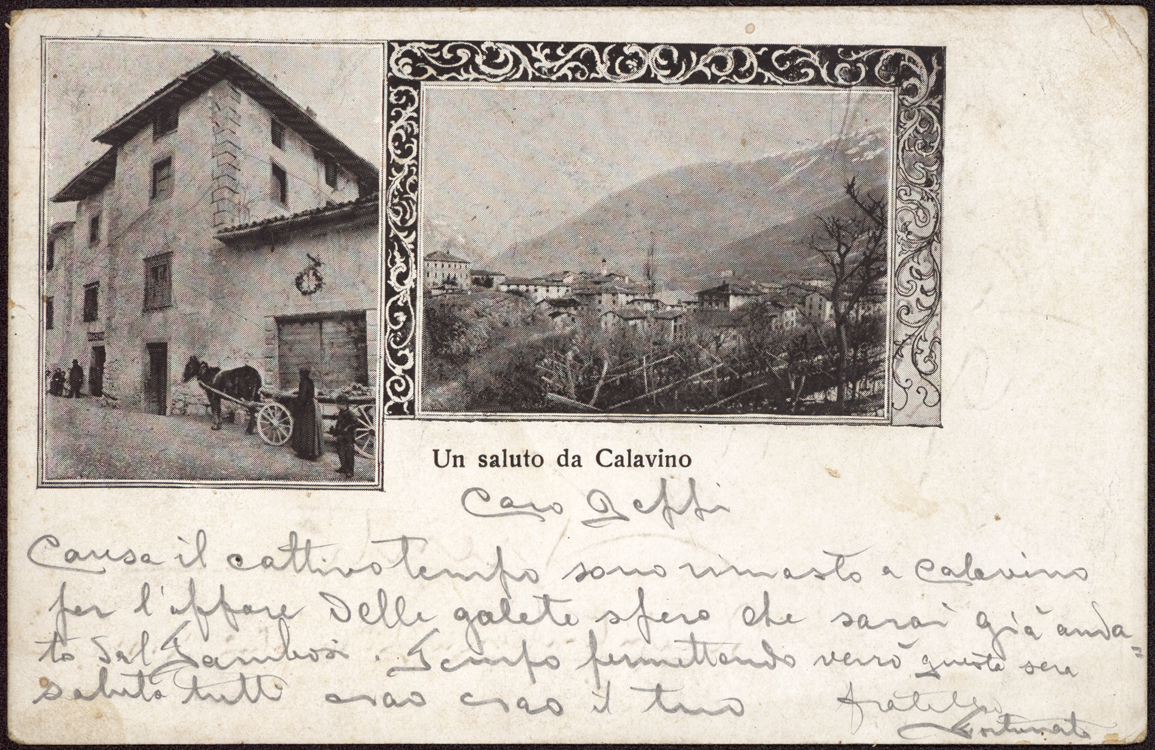 Un saluto da Calavino
Caro Beppi
Causa il cattivo tempo sono rimasto a Calavino
per l'affare delle galete spero che sarai già anda=
to dal Gambosi. Tempo permettendo verrò questa sera
saluta tutti ciao ciao il tuo fratello
Fortunato